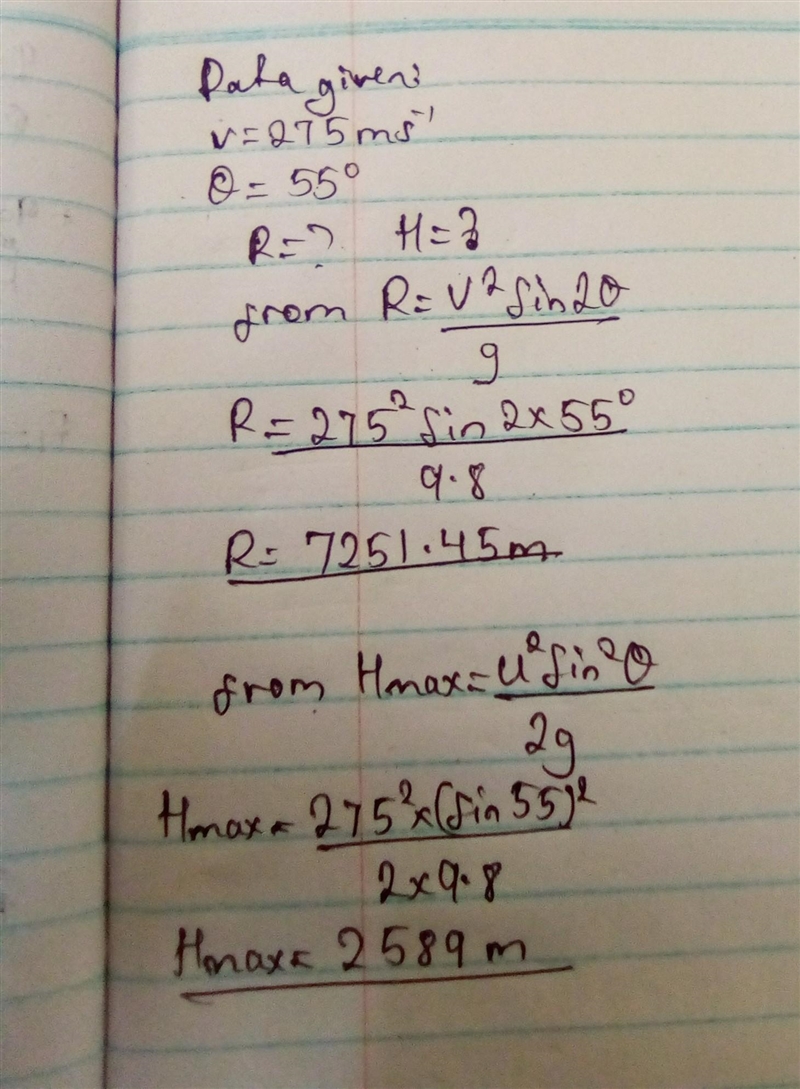 Data given:
v=275ms⁻¹
θ= 55°
R=? H=?
from R= V² sin2θ
g
R= 275² sin 2x55°
9.8
R= 7251.45m
from Hmax= u² sin²θ
2g
Hmax= 275²x(sin 55)²
2x9.8
Hmax= 2589 m